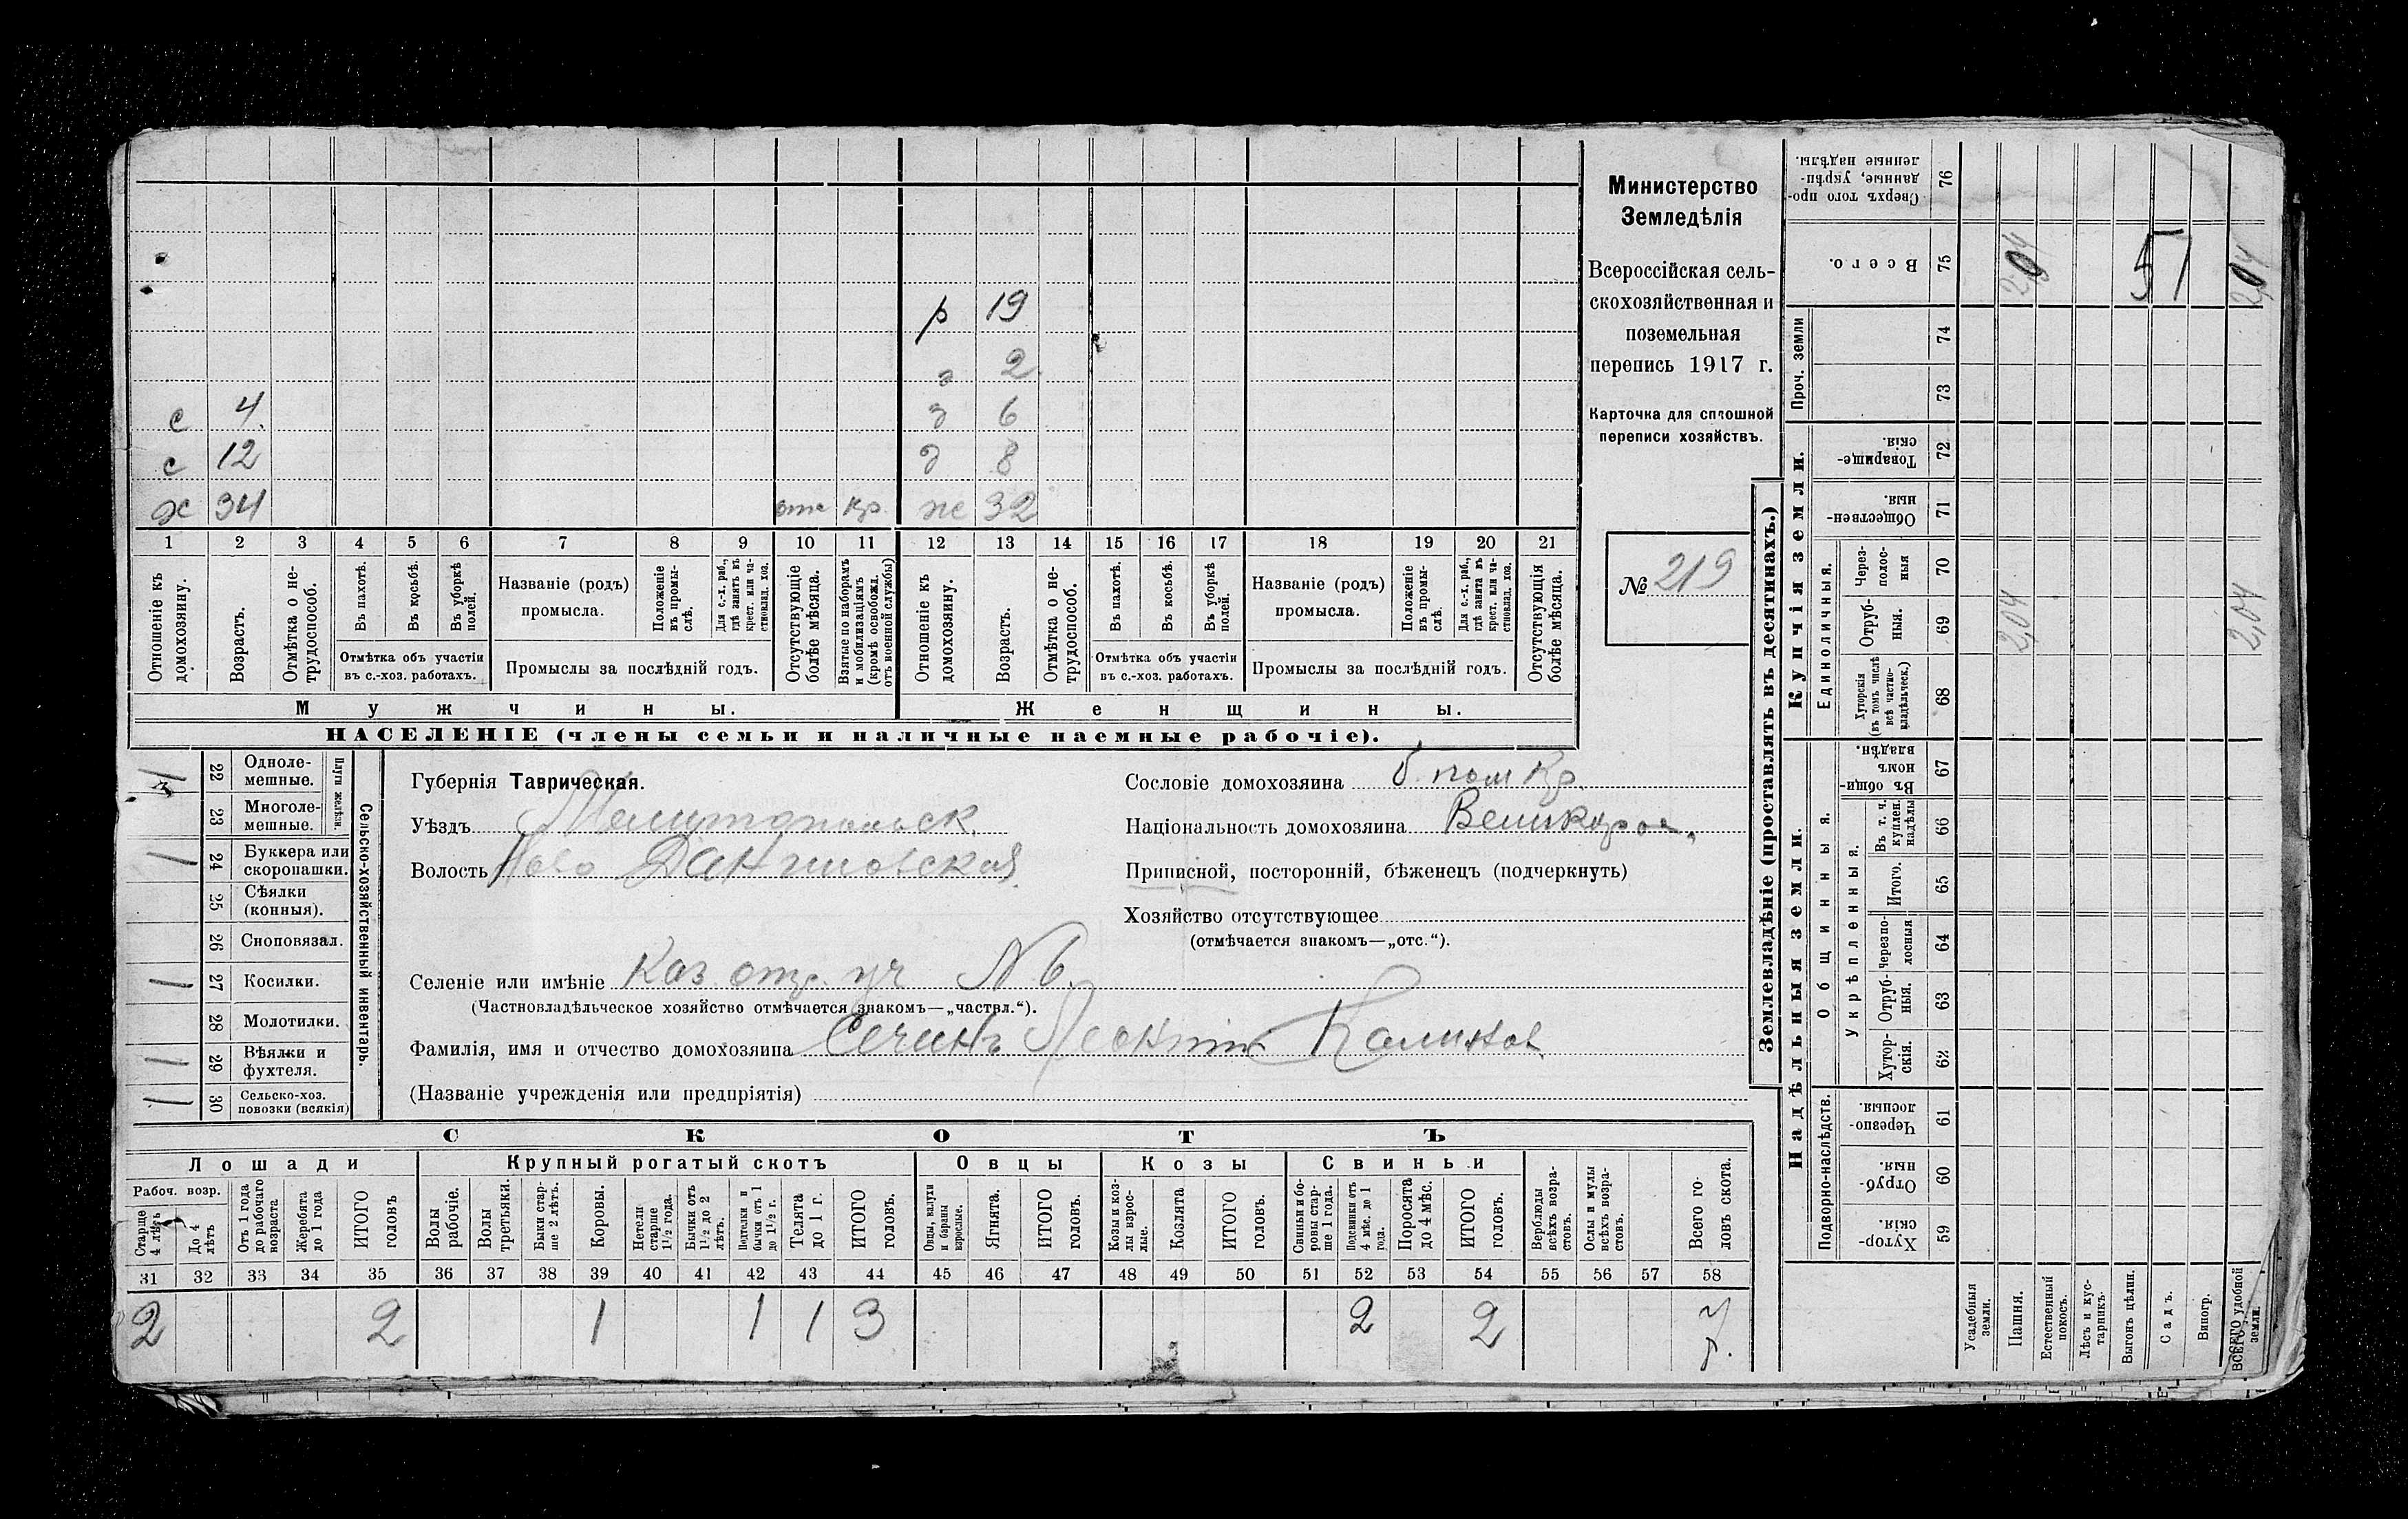 Министерство
Земледѣлія
Всероссійская сель-
скохозяйственная и
поземельная
перепись 1917 г.
Карточка для сплошной
переписи хозяйствъ.
№ 219
р 19
2
с 4 д 6
с 12 д 8
х 34 отс кр. ж 32
1 2 3 4 5 6 7 8 9 10 11 12 13 14 15 16 17 18 19 20 21
Отношеніе къ домохозяину.
Возрастъ.
Отмѣтка о не-трудоспособ.
Въ пахотѣ.
Въ косьбѣ.
Въ уборкѣ полей.
Отмѣтка объ участіи въ с.-хоз. работахъ.
Названіе (родъ) промысла.
Положеніе въ промы-слѣ.
Для с.-х. раб., гдѣ занятъ въ крест. или ча-стновлад. хоз.
Промыслы за послѣдній годъ.
Отсутствующіе болѣе мѣсяца.
Взятые по наборамъ и мобилизаціямъ (кромѣ освобожд. отъ военной службы)
Отношеніе къ домохозяину.
Возрастъ.
Отмѣтка о не-трудоспособ.
Въ пахотѣ.
Въ косьбѣ.
Въ уборкѣ полей.
Отмѣтка объ участіи въ с.-хоз. работахъ.
Названіе (родъ) промысла.
Положеніе въ промы-слѣ.
Для с.-х. раб., гдѣ занята въ крест. или ча-стновлад. хоз.
Промыслы за послѣдній годъ.
Отсутствующія болѣе мѣсяца.
Мужчины. Женщины.
НАСЕЛЕНІЕ (члены семьи и наличные наемные рабочіе).
Сельско-хозяйственный инвентарь.
Плуги желѣзн.
22 Одноле-мешные.
1 23 Многоле-мешные.
1 24 Буккера или скоропашки.
25 Сѣялки (конныя).
26 Сноповязал.
1 27 Косилки.
28 Молотилки.
1 29 Вѣялки и фухтеля.
1 30 Сельско-хоз. повозки (всякія)
Губернія Таврическая.
Уѣздъ Мелитопольск.
Волость Ново Даниловская
Селеніе или имѣніе Каз. отр. уч N 6.
(Частновладѣльческое хозяйство отмѣчается знакомъ—„частвл.“).
Фамилія, имя и отчество домохозяина Сечинъ Леонтій Калинов
(Названіе учрежденія или предпріятія)
Сословіе домохозяина б. пом кр.
Національность домохозяина Великорос,
Приписной, посторонній, бѣженецъ (подчеркнуть)
Хозяйство отсутствующее
(отмѣчается знакомъ—„отс.“).
СКОТЪ
Лошади Крупный рогатый скотъ Овцы Козы Свиньи
Рабоч. возр.
Старше 4 лѣтъ
До 4 лѣтъ
Отъ 1 года до рабочаго возраста
Жеребята до 1 года
ИТОГО головъ
Волы рабочіе.
Волы третьяки.
Быки стар-ше 2 лѣтъ.
Коровы.
Нетели старше 1½ года.
Бычки отъ 1½ до 2 лѣтъ.
Подтелки и бычки отъ 1 до 1½ г.
Телята до 1 г.
ИТОГО головъ.
Овцы, валухи и бараны взрослые.
Ягнята.
ИТОГО головъ.
Козы и коз-лы взрос-лые.
Козлята
ИТОГО головъ.
Свиньи и бо-ровы стар-ше 1 года.
Подсвинки отъ 4 мѣс. до 1 года.
Поросята до 4 мѣс.
ИТОГО головъ.
Верблюды всѣхъ возра-стовъ.
Ослы и мулы всѣхъ возра-стовъ.
Всего го-ловъ скота.
31 32 33 34 35 36 37 38 39 40 41 42 43 44 45 46 47 48 49 50 51 52 53 54 55 56 57 58
2 2 1 1 1 3 2 2 7
Землевладѣніе (проставлять въ десятинахъ.)
Сверхъ того про-данные, укрѣп-ленные надѣлы. 76
Всего. 75 2,04 51 2,04
Проч. земли 74
73
Купчія земли.
Товарище-скія. 72
Обществен-ныя. 71
Единоличныя.
Через-полос-ныя 70
Отруб-ныя. 69 2,04 2,04
Хуторскія (въ томъ числѣ всѣ частно-владѣльческ.) 68
Надѣльныя земли.
Общинныя.
Въ общи-номъ владѣн. 67
Укрѣпленныя.
Въ т. ч. куплен. надѣлы 66
Итого. 65
Черезпо-лосныя 64
Отруб-ныя. 63
Хутор-скія. 62
Подворно-наслѣдств.
Черезпо-лосныя. 61
Отруб-ныя. 60
Хутор-скія. 59
Усадебныя земли.
Пашня.
Естественный покосъ.
Лѣсъ и кус-тарникъ.
Выгонъ цѣлин.
Садъ.
Виногр.
ВСЕГО удобной земли.